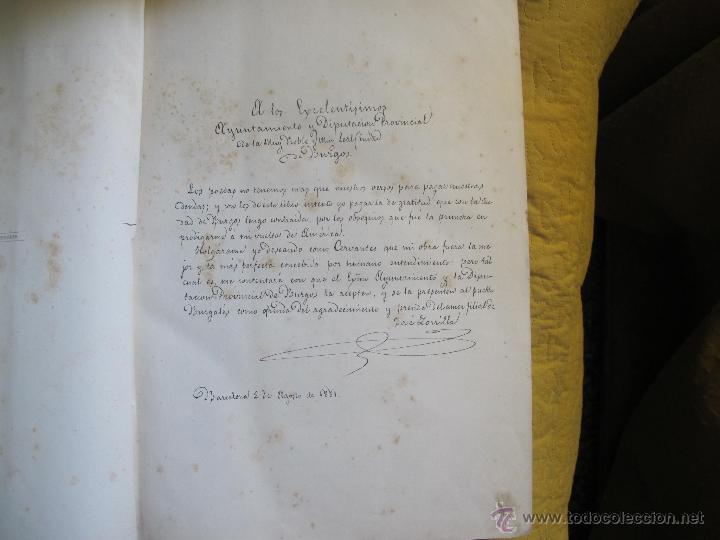 A los Excelentísimos
Ayuntamiento y Diputacion Provincial
de la Muy Noble y Muy Leal Ciudad
de Burgos.
Los poetas no tenemos mas que nuestros versos para pagar nuestras
deudas; y con los de este libro intento yo pagar la de gratitud que con la Ciu-
dad de Burgos tengo contraida, por los obsequios que fué la primera en
prodigarme a mi vuelta de América.
Holgárame yo deseando como Cervantes que mi obra fuera la me-
jor y la más perfecta concebida por humano entendimiento: pero tál
cual es, me contentára con que el Exmo Ayuntamiento y la Dipu-
tacion Provincial de Burgos la acepten, y se la presenten al pueblo
Burgales como ofrenda del agradecimiento y prenda del amor filial de
José Zorrilla
Barcelona 2 de Agosto de 1881.
todocoleccion
www.todocoleccion.net